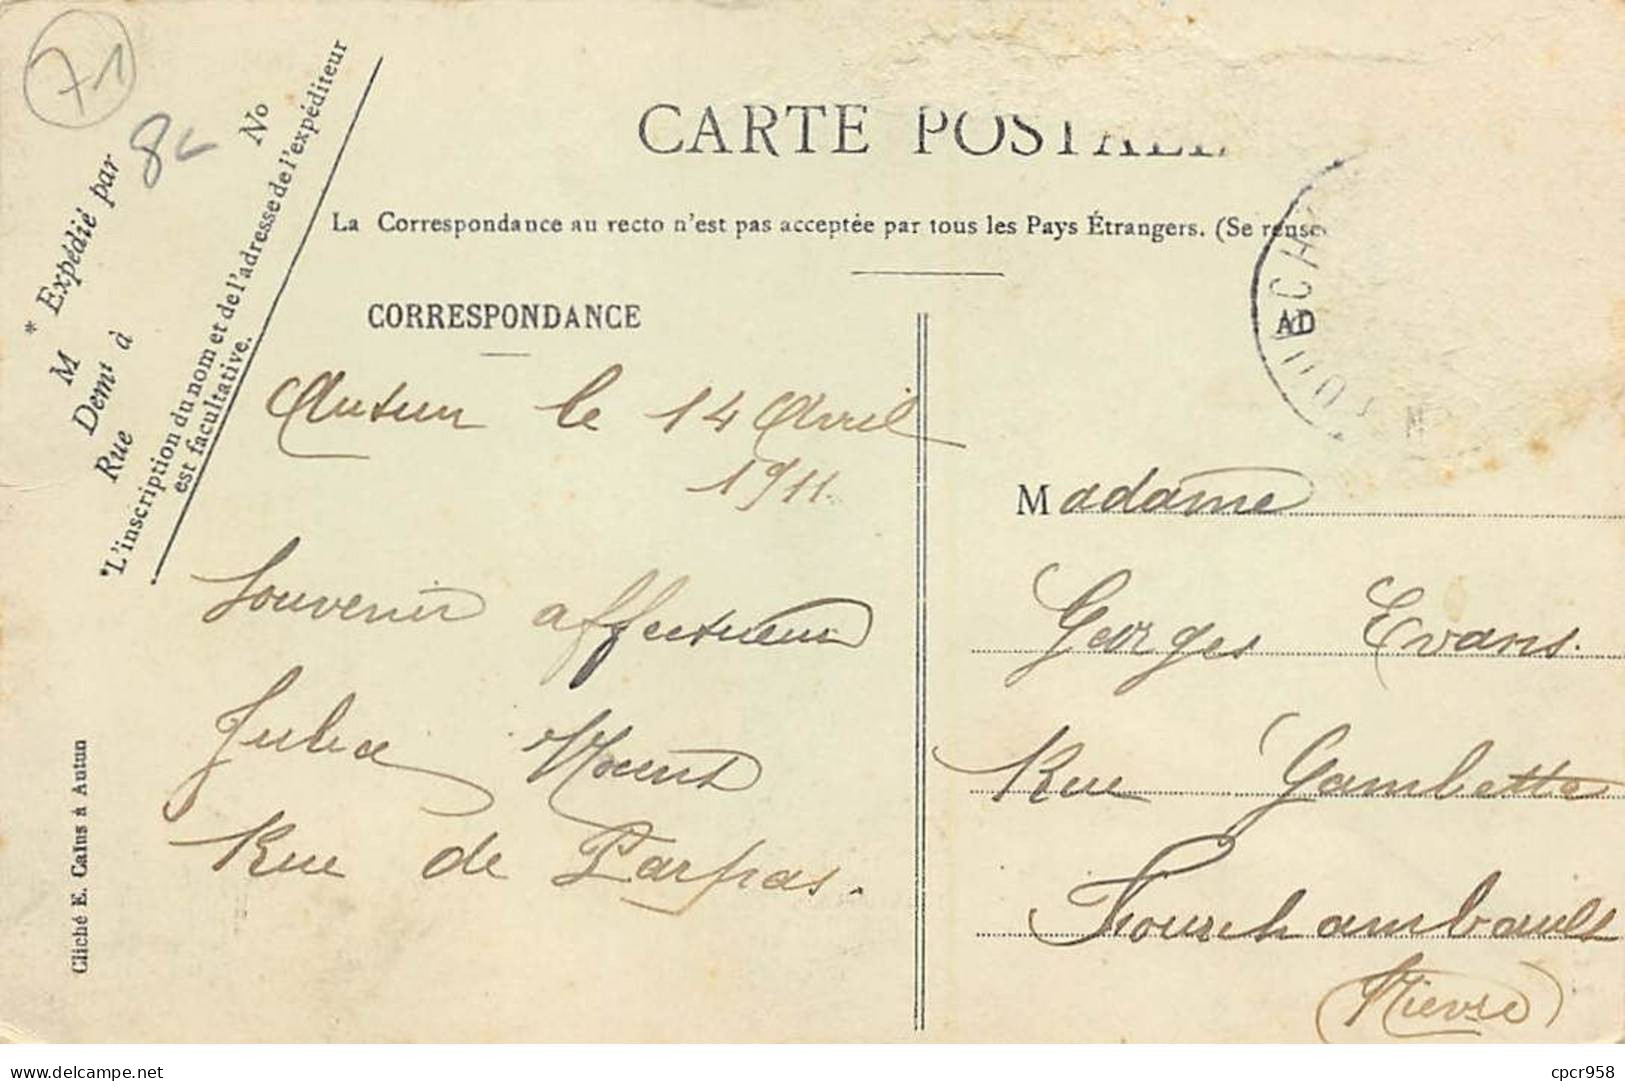 71
8
* Expédié par
M
Demt à
Rue
No
*L'inscription du nom et de l'adresse de l'expéditeur
est facultative.
CARTE POSTALE
La Correspondance au recto n'est pas acceptée par tous les Pays Étrangers. (Se rense
CORRESPONDANCE
Autun le 14 Avril
1911.
Souvenir affectueux
Julia
Rue de Parpas.
Cliché E. Calus à Autun
AD
Madame
Georges Evans.
Rue Gambetta
Fourchambault
(Nièvre)
Delcampe.net
cpcr958